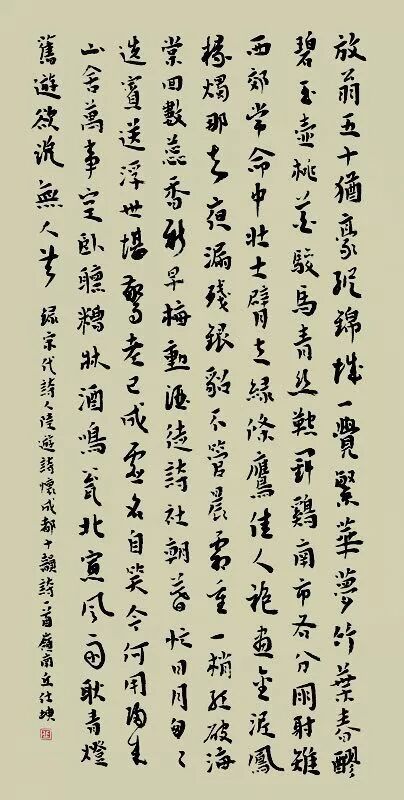 放翁五十猶豪縱錦城一覺繁華夢竹葉春醪
碧玉壺桃花駿馬青絲鞚鬥鷄南市各分朋射雉
西郊常命中壯士臂立綠絛鷹佳人袍畫金泥鳳
椽燭那知夜漏殘銀貂不管晨霜重一梢紅破海
棠回數蕊香新早梅動酒徒詩社朝暮忙日月匆匆
迭賓送浮世堪驚老已成虛名自笑今何用歸來
山舍萬事空臥聽糟牀酒鳴瓮北窗風雨耿青燈
舊遊欲說無人共 錄宋代詩人陸遊詩懷成都十韻詩一首嶺南丘仕坤